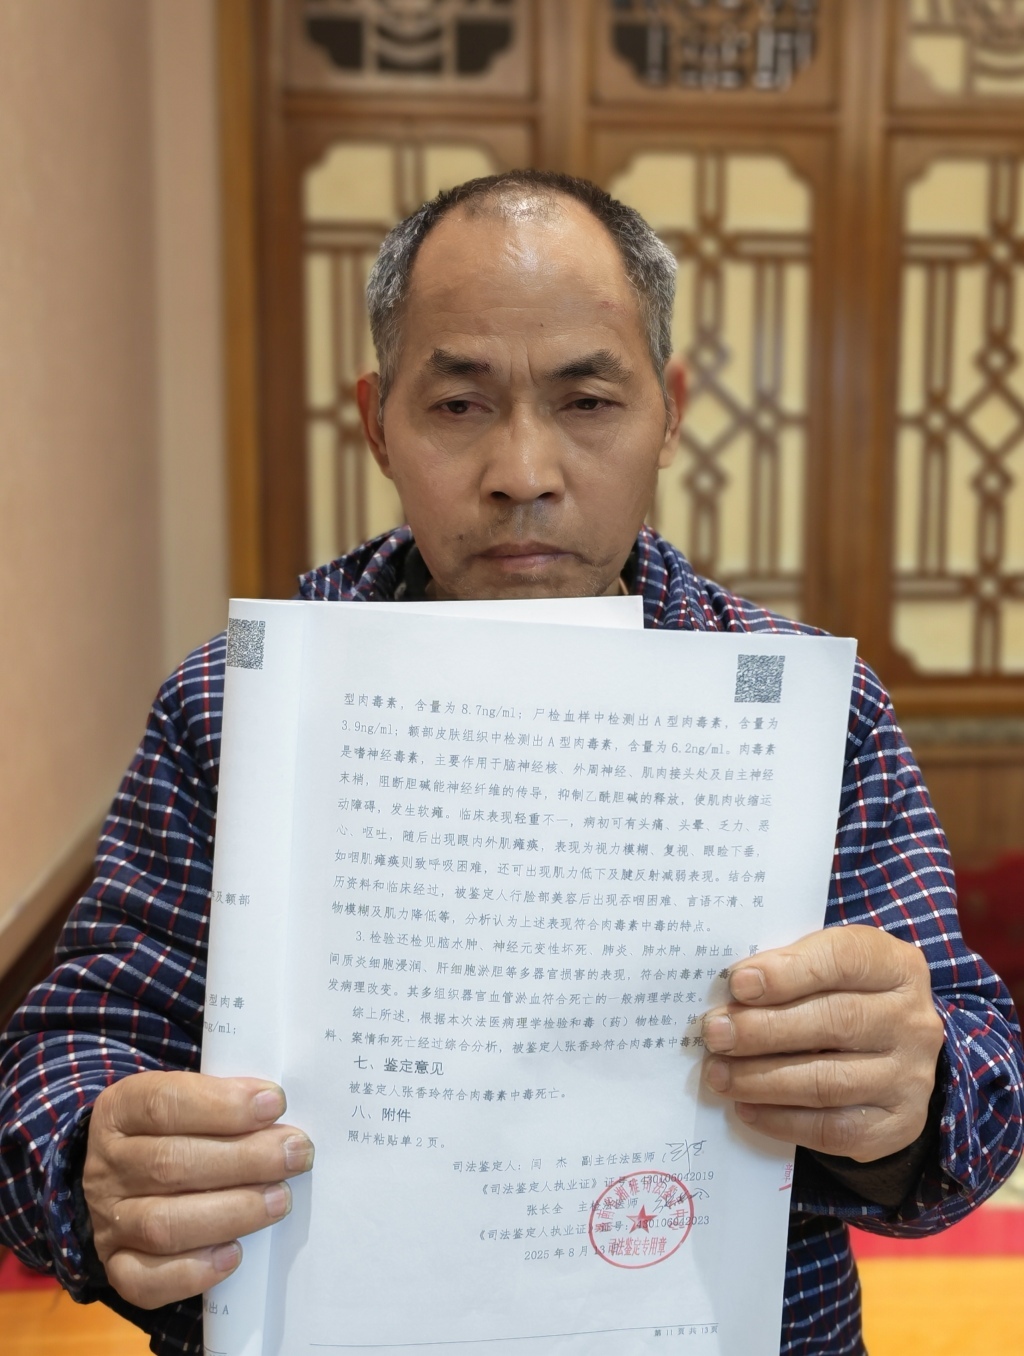 型肉毒素，含量为 8.7ng/ml；尸检血样中检测出 A 型肉毒素，含量为
3.9ng/ml；额部皮肤组织中检测出 A 型肉毒素，含量为 6.2ng/ml。肉毒素
是嗜神经毒素，主要作用于脑神经核、外周神经、肌肉接头处及自主神经
末梢，阻断胆碱能神经纤维的传导，抑制乙酰胆碱的释放，使肌肉收缩运
动障碍，发生软瘫。临床表现轻重不一，病初可有头痛、头晕、乏力、恶
心、呕吐，随后出现眼内外肌瘫痪，表现为视力模糊、复视、眼睑下垂，
如咽肌瘫痪则致呼吸困难，还可出现肌力低下及腱反射减弱表现。结合病
历资料和临床经过，被鉴定人行脸部美容后出现吞咽困难、言语不清、视
物模糊及肌力降低等，分析认为上述表现符合肉毒素中毒的特点。
3.检验还检见脑水肿、神经元变性坏死、肺炎、肺水肿、肺出血、肾
间质炎细胞浸润、肝细胞淤胆等多器官损害的表现，符合肉毒素中毒
发病理改变。其多组织器官血管淤血符合死亡的一般病理学改变。
综上所述，根据本次法医病理学检验和毒（药）物检验，结
料、案情和死亡经过综合分析，被鉴定人张香玲符合肉毒素中毒死
七、鉴定意见
被鉴定人张香玲符合肉毒素中毒死亡。
八、附件
照片粘贴单 2 页。
司法鉴定人：闵 杰 副主任法医师
《司法鉴定人执业证》证号：430106042019
张长全 主检法医师
《司法鉴定人执业证》证号：430106042023
2025 年 8 月 13 日
司法鉴定专用章
第 11 页 共 13 页
及额部
型肉毒
ng/ml；
出 A